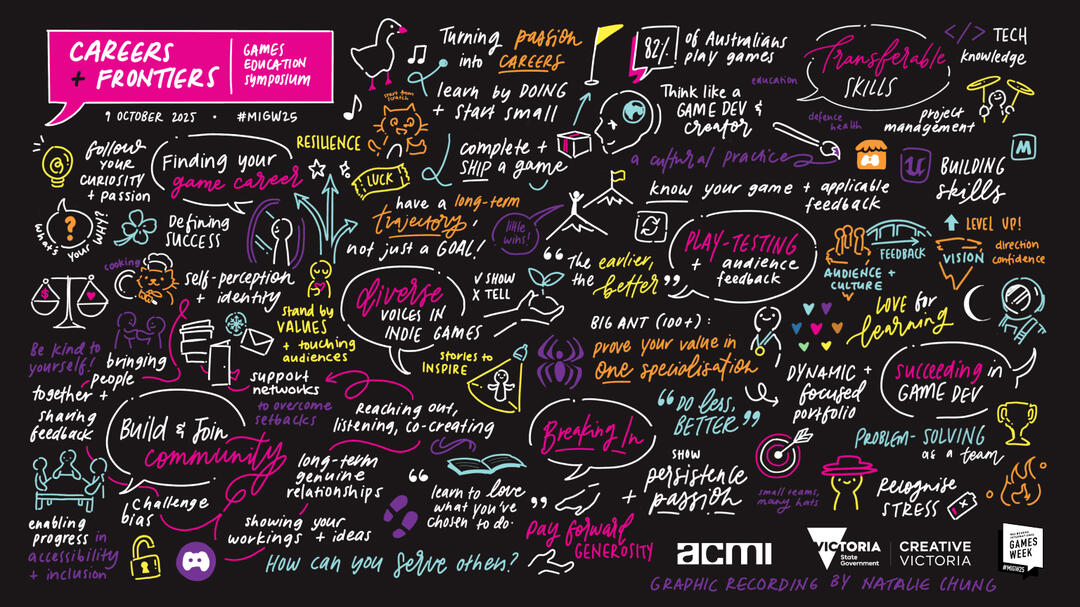 CAREERS
+ FRONTIERS
GAMES
EDUCATION
SYMPOSIUM
9 OCTOBER 2025 · #MIGW25
Turning passion
into CAREERS
learn by DOING
+ start small
start from
scratch
complete +
SHIP a game
82%
of Australians
play games
education
Think like a
GAME DEV &
creator
a cultural practice
know your game + applicable
feedback
Transferable
SKILLS
</> TECH
knowledge
defence
health
project
management
U
M
BUILDING
skills
LEVEL UP!
follow
YOUR
CURIOSITY
+ passion
Finding your
game career
RESILIENCE
LUCK
?
what's your WHY?
Defining
SUCCESS
have a long-term
trajectory,
not just a GOAL!
little
wins!
cooking
self-perception
+ identity
$
stand by
VALUES
+ touching
audiences
diverse
VOICES IN
INDIE GAMES
V SHOW
X TELL
"The earlier,
the better"
PLAY-TESTING
+ audience
feedback
FEEDBACK
AUDIENCE +
CULTURE
VISION
direction
confidence
LOVE for
learning
Be kind to
yourself!
bringing
people
together +
sharing
feedback
support
networks
to overcome
setbacks
stories to
INSPIRE
BIG ANT (100+):
prove your value in
one specialisation
DYNAMIC +
focused
portfolio
succeeding in
GAME DEV
Build & Join
community
Reaching out,
listening, co-creating
Breaking In
"DO less,
BETTER"
SHOW
persistence
+ passion
PROBLEM-SOLVING
as a team
small teams,
many hats
Recognise
STRESS
challenge
bias
long-term
genuine
relationships
"learn to love
what you've
chosen to do."
enabling
progress in
accessibility
+ inclusion
showing your
workings + ideas
How can you serve others?
pay forward
GENEROSITY
acmi
VICTORIA
State
Government
CREATIVE
VICTORIA
GAMES
WEEK
#MIGW25
GRAPHIC RECORDING BY NATALIE CHUNG